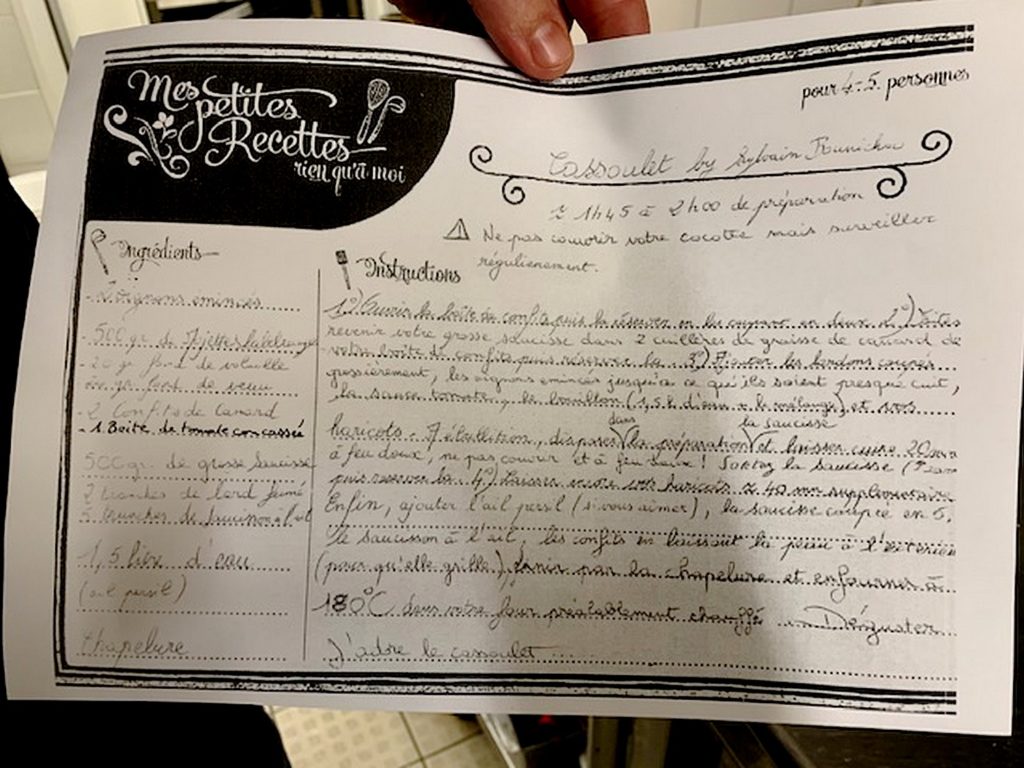 Mes
petites
Recettes
rien qu'à moi
pour 4-5 personnes
Cassoulet by Sylvain
≈ 1h45 à 2h00 de préparation
⚠ Ne pas couvrir votre cocotte mais surveiller
régulièrement.
Ingrédients
- 2 oignons émincés
- 500 gr. de
- 20 gr fond de volaille
20 gr. fond de veau
- 2 confits de canard
- 1 Boite de tomate concassée
500 gr. de grosse saucisse
2 tranches de lard fumé
tranches de saucisson à l'ail
1,5 litre d'eau
(ail persil)
Chapelure
Instructions
1°) Ouvrir la boîte de confits puis la réserver en les coupant en deux. 2°) Faites
revenir votre grosse saucisse dans 2 cuillères de graisse de canard de
votre boîte de confits puis réserver la. 3°) Ajouter les lardons coupés
grossièrement, les oignons émincés jusqu'à ce qu'ils soient presque cuit,
la sauce tomate, le bouillon (1,5 l. d'eau + le mélange) et vos
dans la saucisse
haricots. A ébullition, disposer la préparation et laisser cuire 20 mn
à feu doux, ne pas couvrir et à feu doux ! Sortez la saucisse
puis réserver la. 4°) Laisser cuire vos haricots ≈ 40 mn supplémentaire
Enfin, ajouter l'ail persil (si vous aimer), la saucisse coupée en 5,
le saucisson à l'ail, les confits en laissant la peau à l'extérieur
(pour qu'elle grille), finir par la chapelure et enfourner à
180°C dans votre four préalablement chauffé Déguster
J'adore le cassoulet